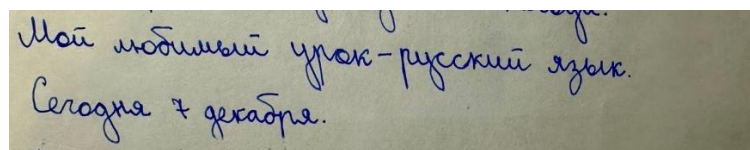 Мой любимый урок-русский язык.
Сегодня 7 декабря.